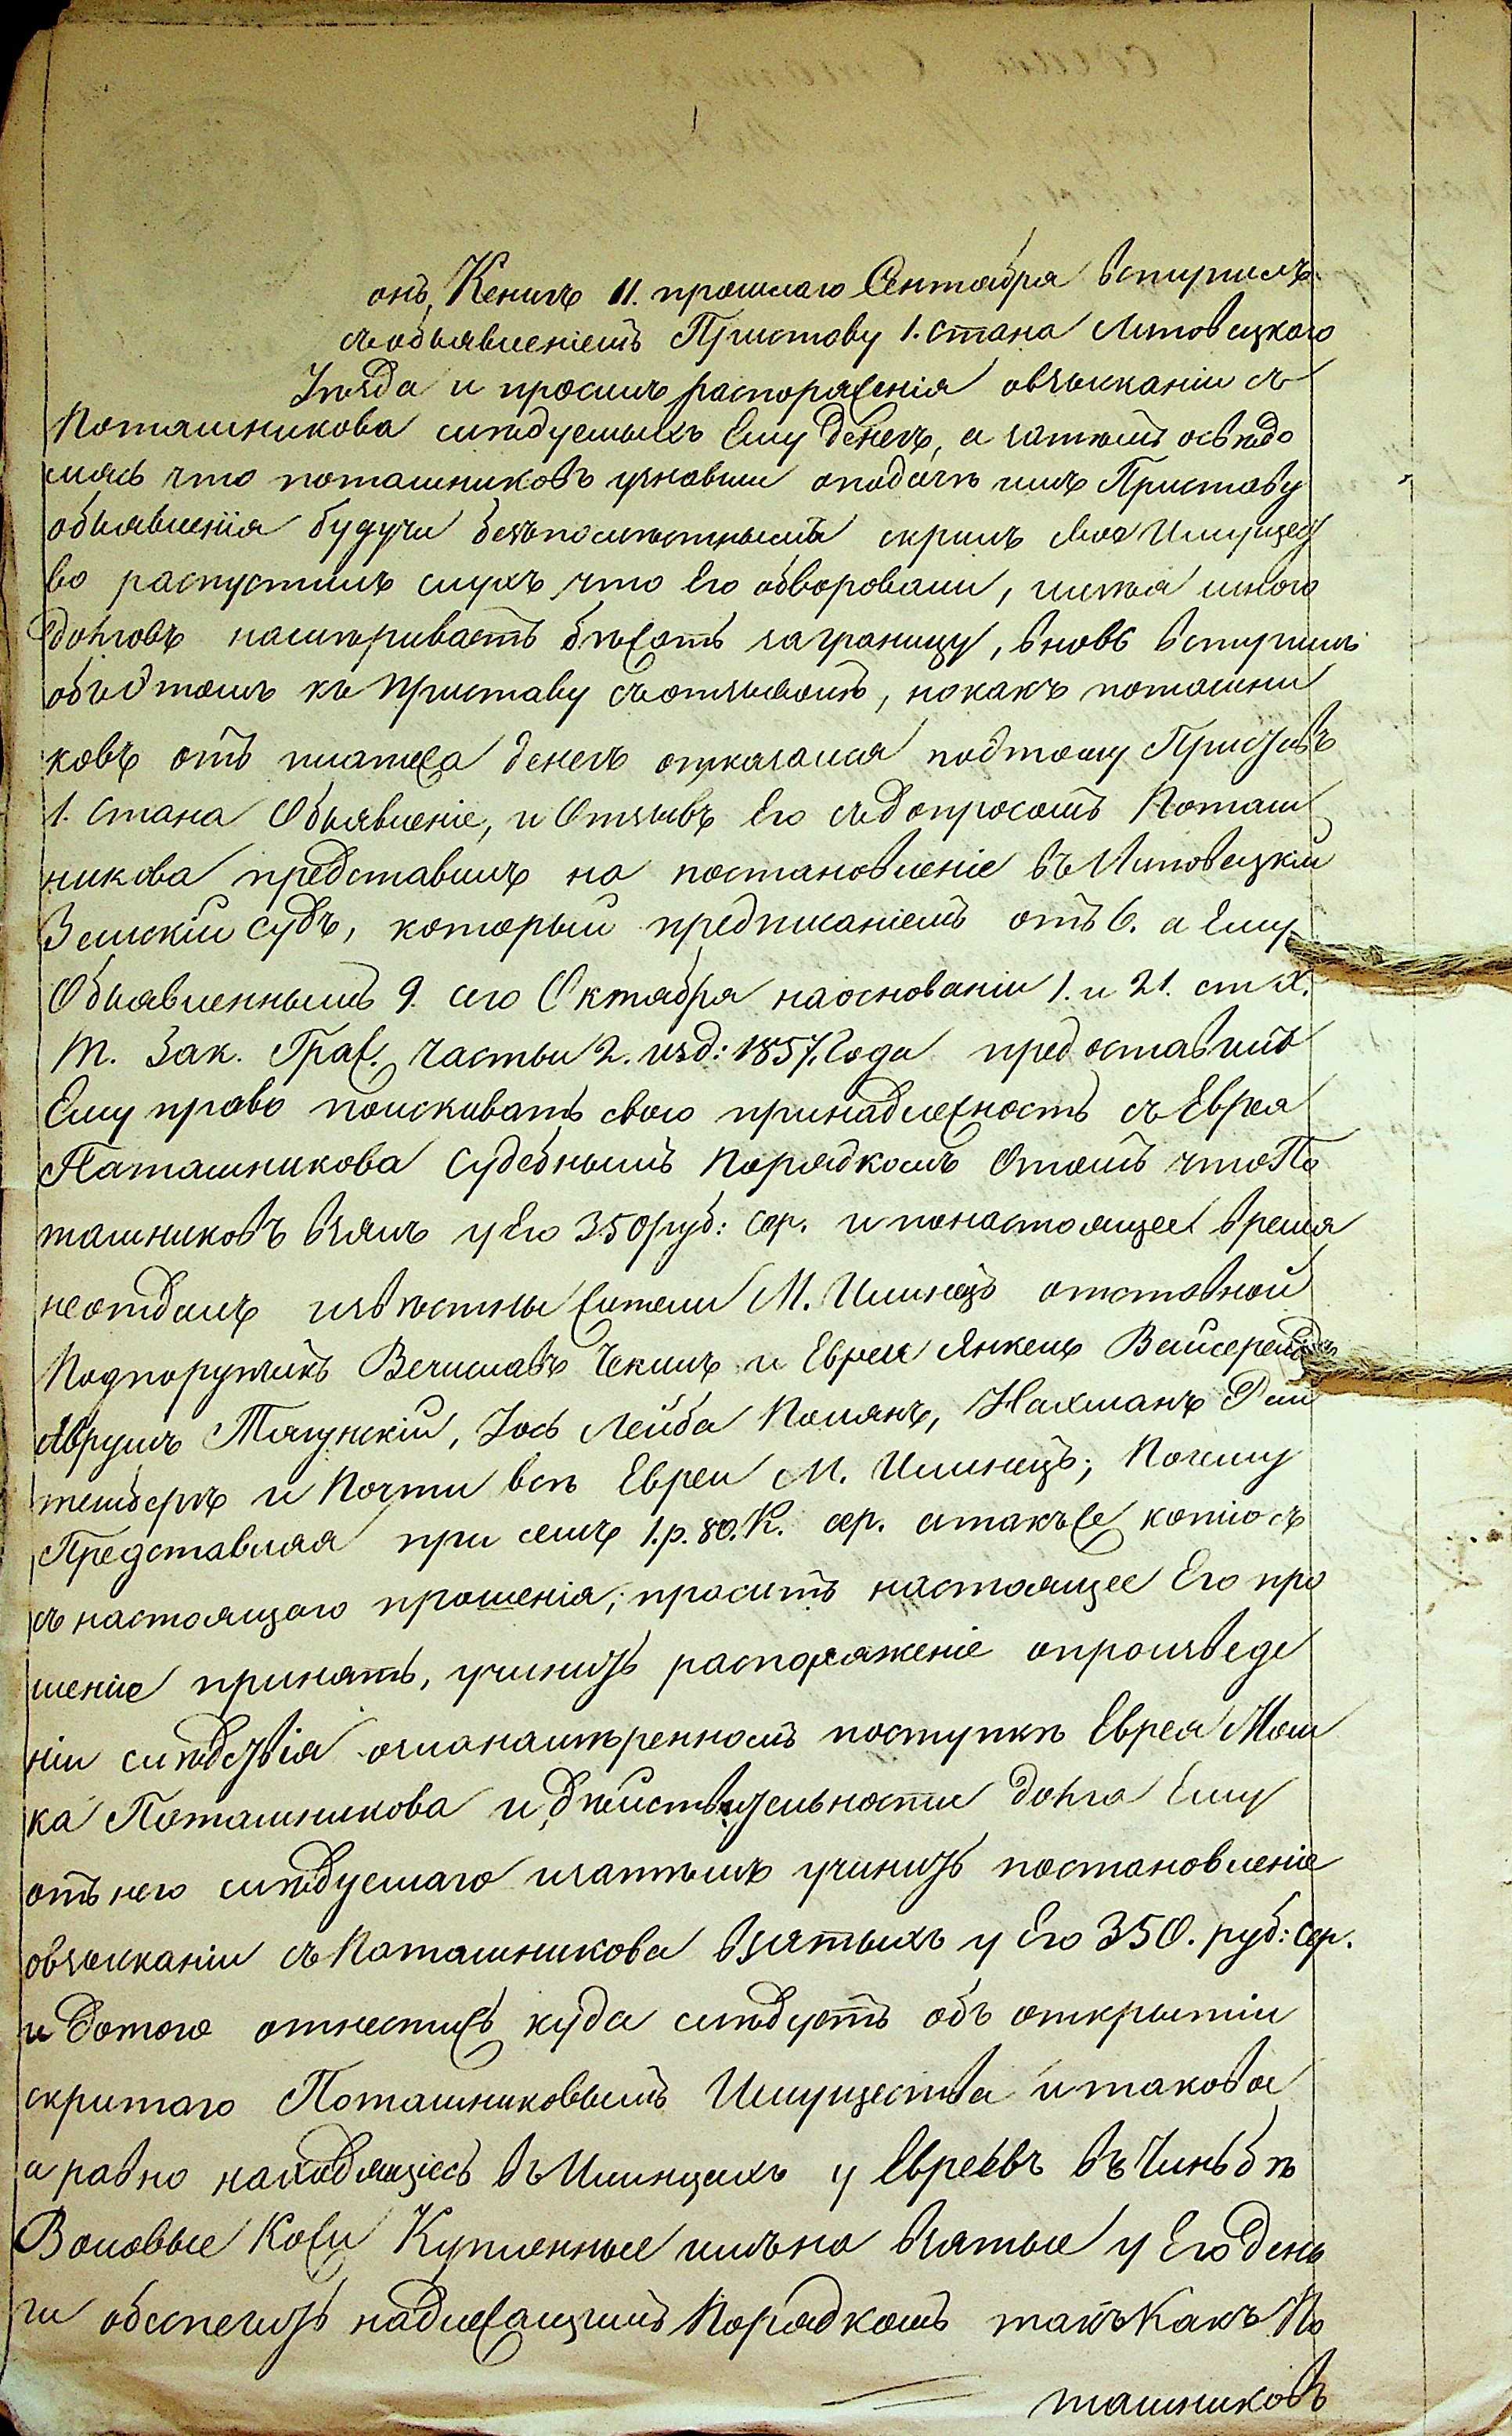 онъ, Кенигъ 11. прошлаго Сентября вступилъ
съобъявленіемъ Приставу 1. стана Липовецкого
Уѣзда и просилъ распоряженія овзысканіи съ
Поташникова слѣдуемыхъ Ему денегъ, а затѣмъ освѣдо
мясь что поташниковъ узнавши оподачѣ имъ Приставу
объявленія будучи безъпомѣстнымъ скрилъ свое Имущест
во распустилъ слухъ что Его обворовали, имѣя много
долговъ намѣриваетъ бѣжать заграницу, вновь вступилъ
объэтомъ къ приставу съотзывомъ, нокакъ поташни
ковъ отъ платежа денегъ отказался поэтому Приставъ
1. Стана Объявленіе, и Отзывъ Его съдопросомъ Поташ
никова представилъ на постановленіе въ Липовецкій
Земскій судъ, который предписаніемъ отъ 6. а Ему
Объявленнымъ 9. сего Октября наоснованіи 1. и 21. ст X.
т. Зак. Граж. части 2. изд: 1857. Года предоставилъ
Ему право поискивать свою принадлежность съ Еврея
Паташникова Судебнымъ Порядкомъ Отомъ чтоПо
ташниковъ взялъ уЕго 350 руб: сер. и понастоящее время
неотдалъ извѣстны жители М. Илинецъ отставной
Подпоручикъ Вечиславъ Чекилъ и Евреи Янкель Вайсерей
Аврумъ Тягунскій, Іось Лейба Полякъ, Нахманъ
и Почти всѣ Евреи М. Илинецъ; Почему
Представляя при семъ 1. р. 80. К. сер. атакъже копіюсъ
съ настоящаго прошенія; проситъ настоящее Его про
шеніе принять, учинить распоряженіе опроизведе
ніи слѣдствія озланамѣренномъ поступкѣ Еврея Мош
ка Поташникова и дѣйствительности долга Ему
отънего слѣдуемаго изатѣмъ учинить постановленіе
овзысканіи съ Поташникова взятыхъ у Его 350. руб: сер.
и дотого отнестись куда слѣдуетъ объ открытіи
скритаго Поташниковымъ Имущества итаковое
а равно находящіесь въ Илинцахъ у Евреевъ въ Чиньбѣ
Воловые Кожи Купленные имъна взятые у Его день
ги обеспечить надлежащимъ Порядкомъ такъ Какъ По
ташниковъ